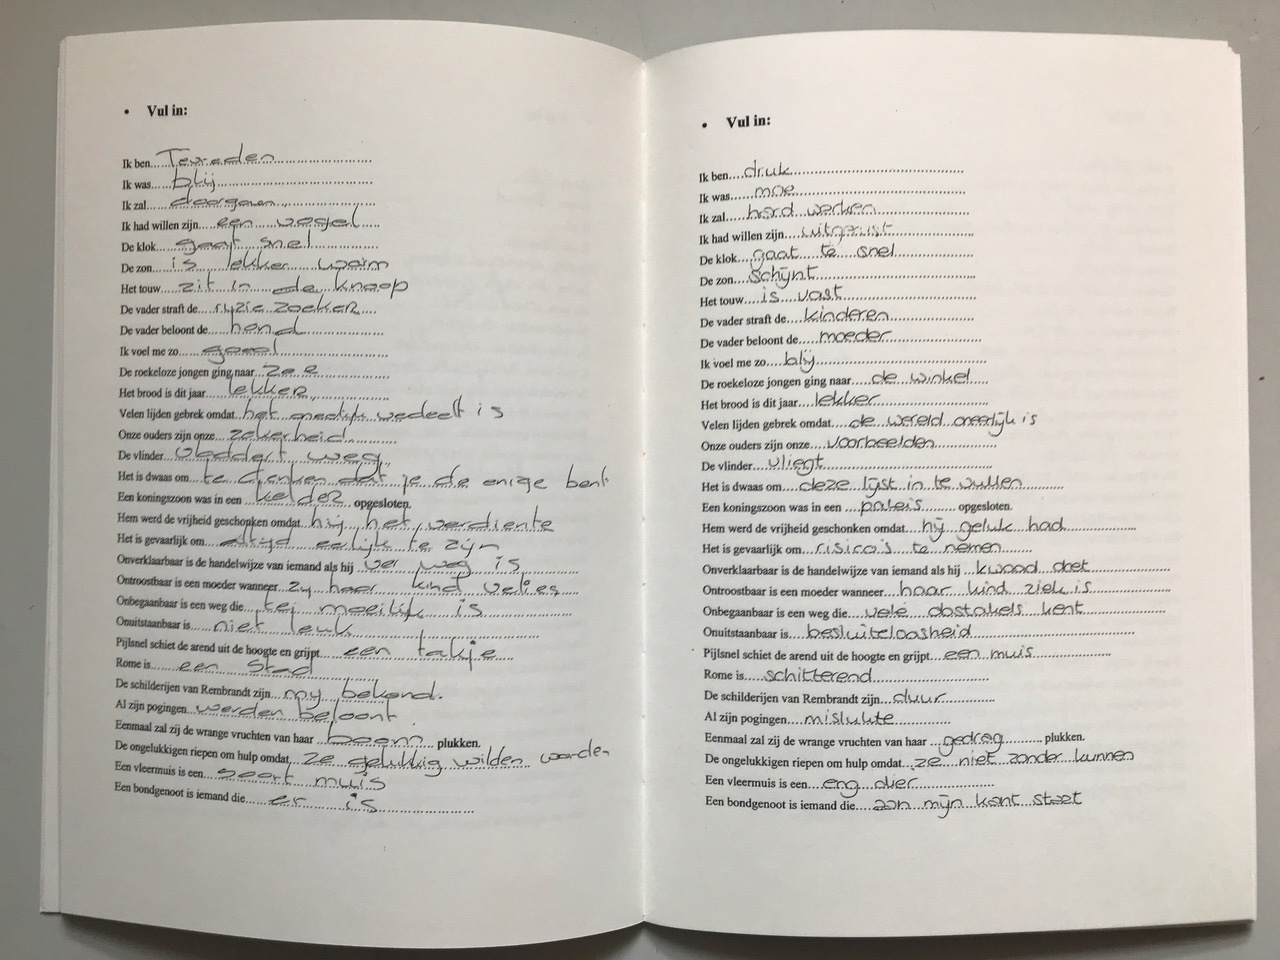 • Vul in:
Ik ben....Tevreden..............................
Ik was.....blij.......................................
Ik zal.....doorgaan.............................
Ik had willen zijn...een vogel.....
De klok....gaat snel................
De zon....is lekker warm
Het touw....zit in de knoop
De vader straft de...ruzie zoeker....
De vader beloont de...hond....................
Ik voel me zo....goed............................
De roekeloze jongen ging naar..zee..................
Het brood is dit jaar....lekker....................
Velen lijden gebrek omdat..het oneerlijk verdeelt is
Onze ouders zijn onze...zekerheid.............
De vlinder...fladdert weg
Het is dwaas om....te denken dat je de enige bent
Een koningszoon was in een ...kelder... opgesloten.
Hem werd de vrijheid geschonken omdat..hij het verdiente
Het is gevaarlijk om....altijd eerlijk te zijn
Onverklaarbaar is de handelwijze van iemand als hij ..ver weg is
Ontroostbaar is een moeder wanneer...zij haar kind velies
Onbegaanbaar is een weg die....te moeilijk is
Onuitstaanbaar is.....niet leuk
Pijlsnel schiet de arend uit de hoogte en grijpt....een takje
Rome is.......een stad
De schilderijen van Rembrandt zijn...mij bekend.
Al zijn pogingen..werden beloont
Eenmaal zal zij de wrange vruchten van haar ..boom.. plukken.
De ongelukkigen riepen om hulp omdat..ze gelukkig wilden worden
Een vleermuis is een....soort muis
Een bondgenoot is iemand die.....er is
• Vul in:
Ik ben....druk............................................
Ik was......moe...........................................
Ik zal......hard werken.......................
Ik had willen zijn...uitgerust....................
De klok....gaat te snel....................
De zon....schijnt.......................................
Het touw....is vast.................................
De vader straft de....kinderen.....................
De vader beloont de.....moeder......................
Ik voel me zo.....blij...........................................
De roekeloze jongen ging naar.....de winkel.....
Het brood is dit jaar....lekker............................
Velen lijden gebrek omdat.....de wereld oneerlijk is
Onze ouders zijn onze....voorbeelden...............
De vlinder...vliegt.........................................
Het is dwaas om....deze lijst in te vullen..........
Een koningszoon was in een ....paleis......... opgesloten.
Hem werd de vrijheid geschonken omdat....hij geluk had.................
Het is gevaarlijk om....risico's te nemen........
Onverklaarbaar is de handelwijze van iemand als hij ...kwaad doet
Ontroostbaar is een moeder wanneer....haar kind ziek is
Onbegaanbaar is een weg die.....vele obstakels kent
Onuitstaanbaar is.....besluiteloosheid
Pijlsnel schiet de arend uit de hoogte en grijpt....een muis
Rome is.....schitterend
De schilderijen van Rembrandt zijn...duur
Al zijn pogingen....mislukte
Eenmaal zal zij de wrange vruchten van haar ...gedrag......... plukken.
De ongelukkigen riepen om hulp omdat....ze niet zonder kunnen
Een vleermuis is een....eng dier
Een bondgenoot is iemand die.....aan mijn kant staat